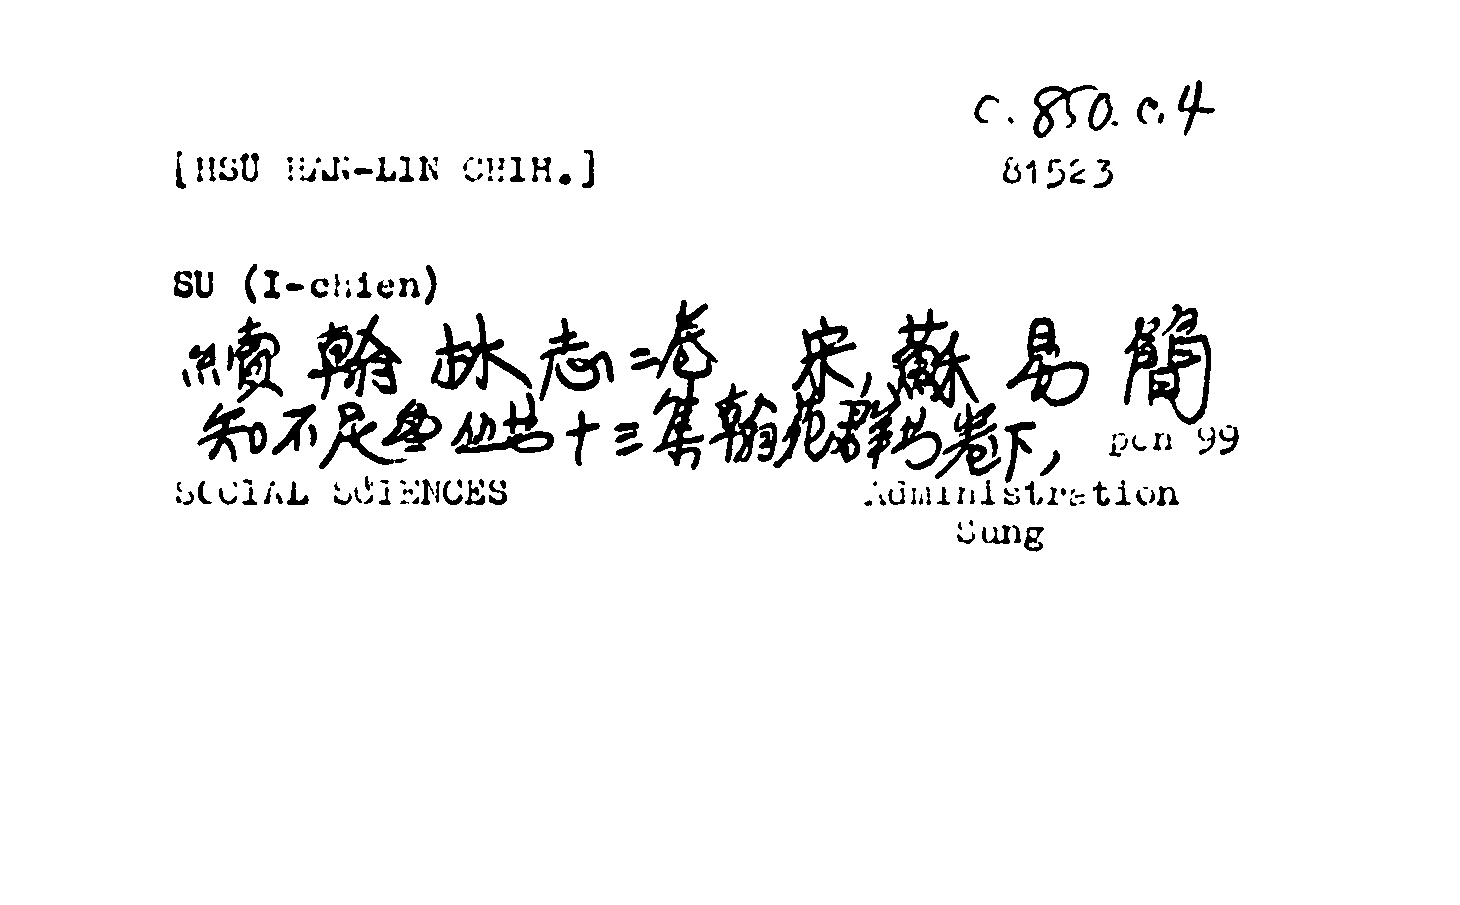 c. 850. c. 4
[HSU HAN-LIN CHIH.] 81523
SU (I-chien)
續翰林志二卷 宋,蘇易簡
知不足叢书十三集翰苑群书卷下, pen 99
SOCIAL SCIENCES Administration
Sung